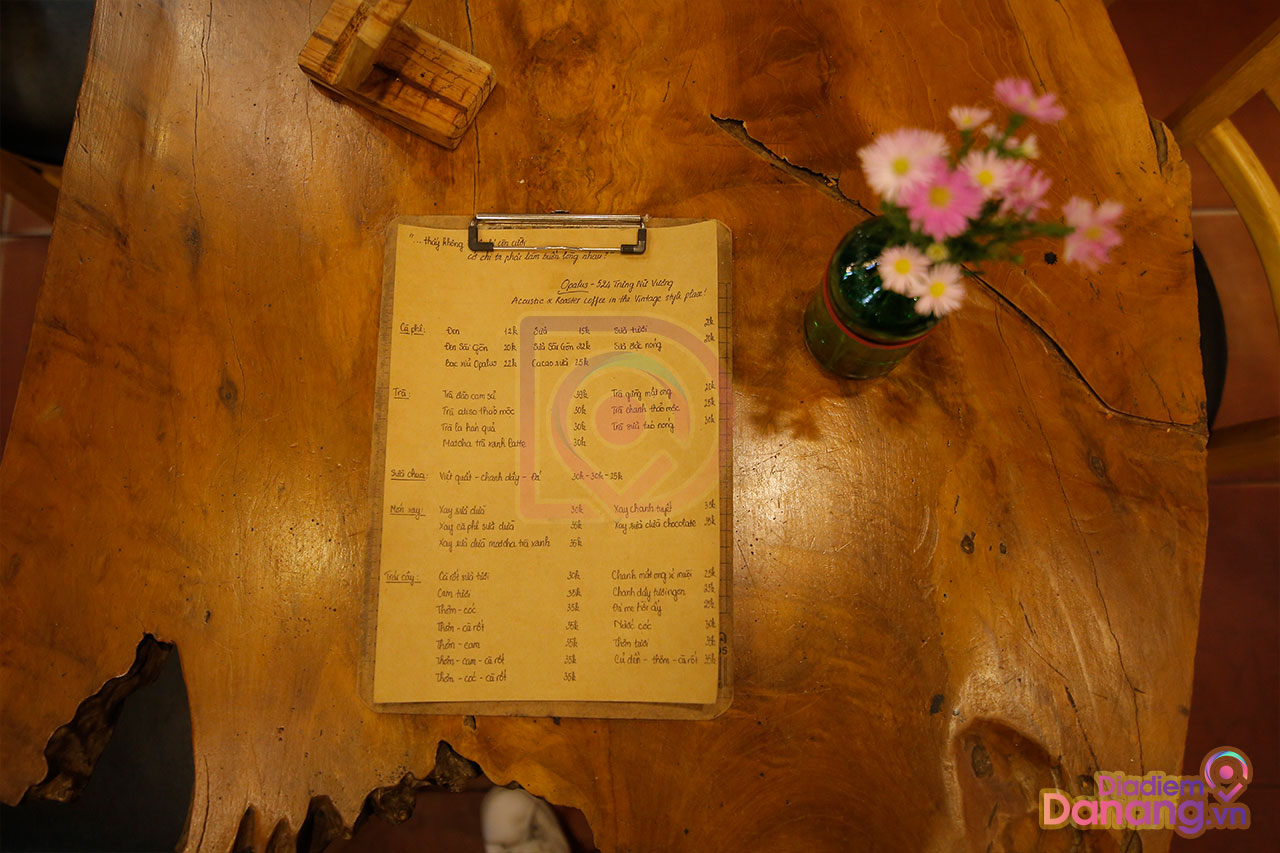 "... thấy không cần cười
cớ chi ta phải làm buồn lòng nhau!"
Opalus - 524 Trưng Nữ Vương
Acoustic x Roaster coffee in the Vintage style place!
Cà phê: Đen 12k Sữa 15k Sữa tươi 21k
Đen Sài Gòn 20k Sữa Sài Gòn 22k Sữa Bắc nóng
Bạc xỉu Opalus 22k Cacao sữa 25k
Trà: Trà đào cam sả Trà gừng mật ong
Trà atiso thảo mộc 30k Trà chanh thảo mộc 25k
Trà la hán quả 30k Trà sữa nóng 30k
Matcha trà xanh latte 30k
Sữa chua: Việt quất - chanh dây - đá 30k - 30k - 25k
Món xay: Xay sữa dừa 30k Xay chanh tuyết
Xay cà phê sữa dừa 35k Xay sữa dừa chocolate 35k
Xay sữa dừa matcha trà xanh 35k
Trái cây: Cà rốt sữa tươi 30k Chanh mật ong xí muội 25k
Cam tươi 35k Chanh dây tươi ngon 25k
Thơm - cóc 35k Đá me hột ấy 25k
Thơm - cà rốt 35k Nước cóc 30k
Thơm - cam 35k Thơm tươi
Thơm - cam - cà rốt 35k Củ dền - thơm - cà rốt 35k
Thơm - cóc - cà rốt 35k
Diadiem
Danang.vn